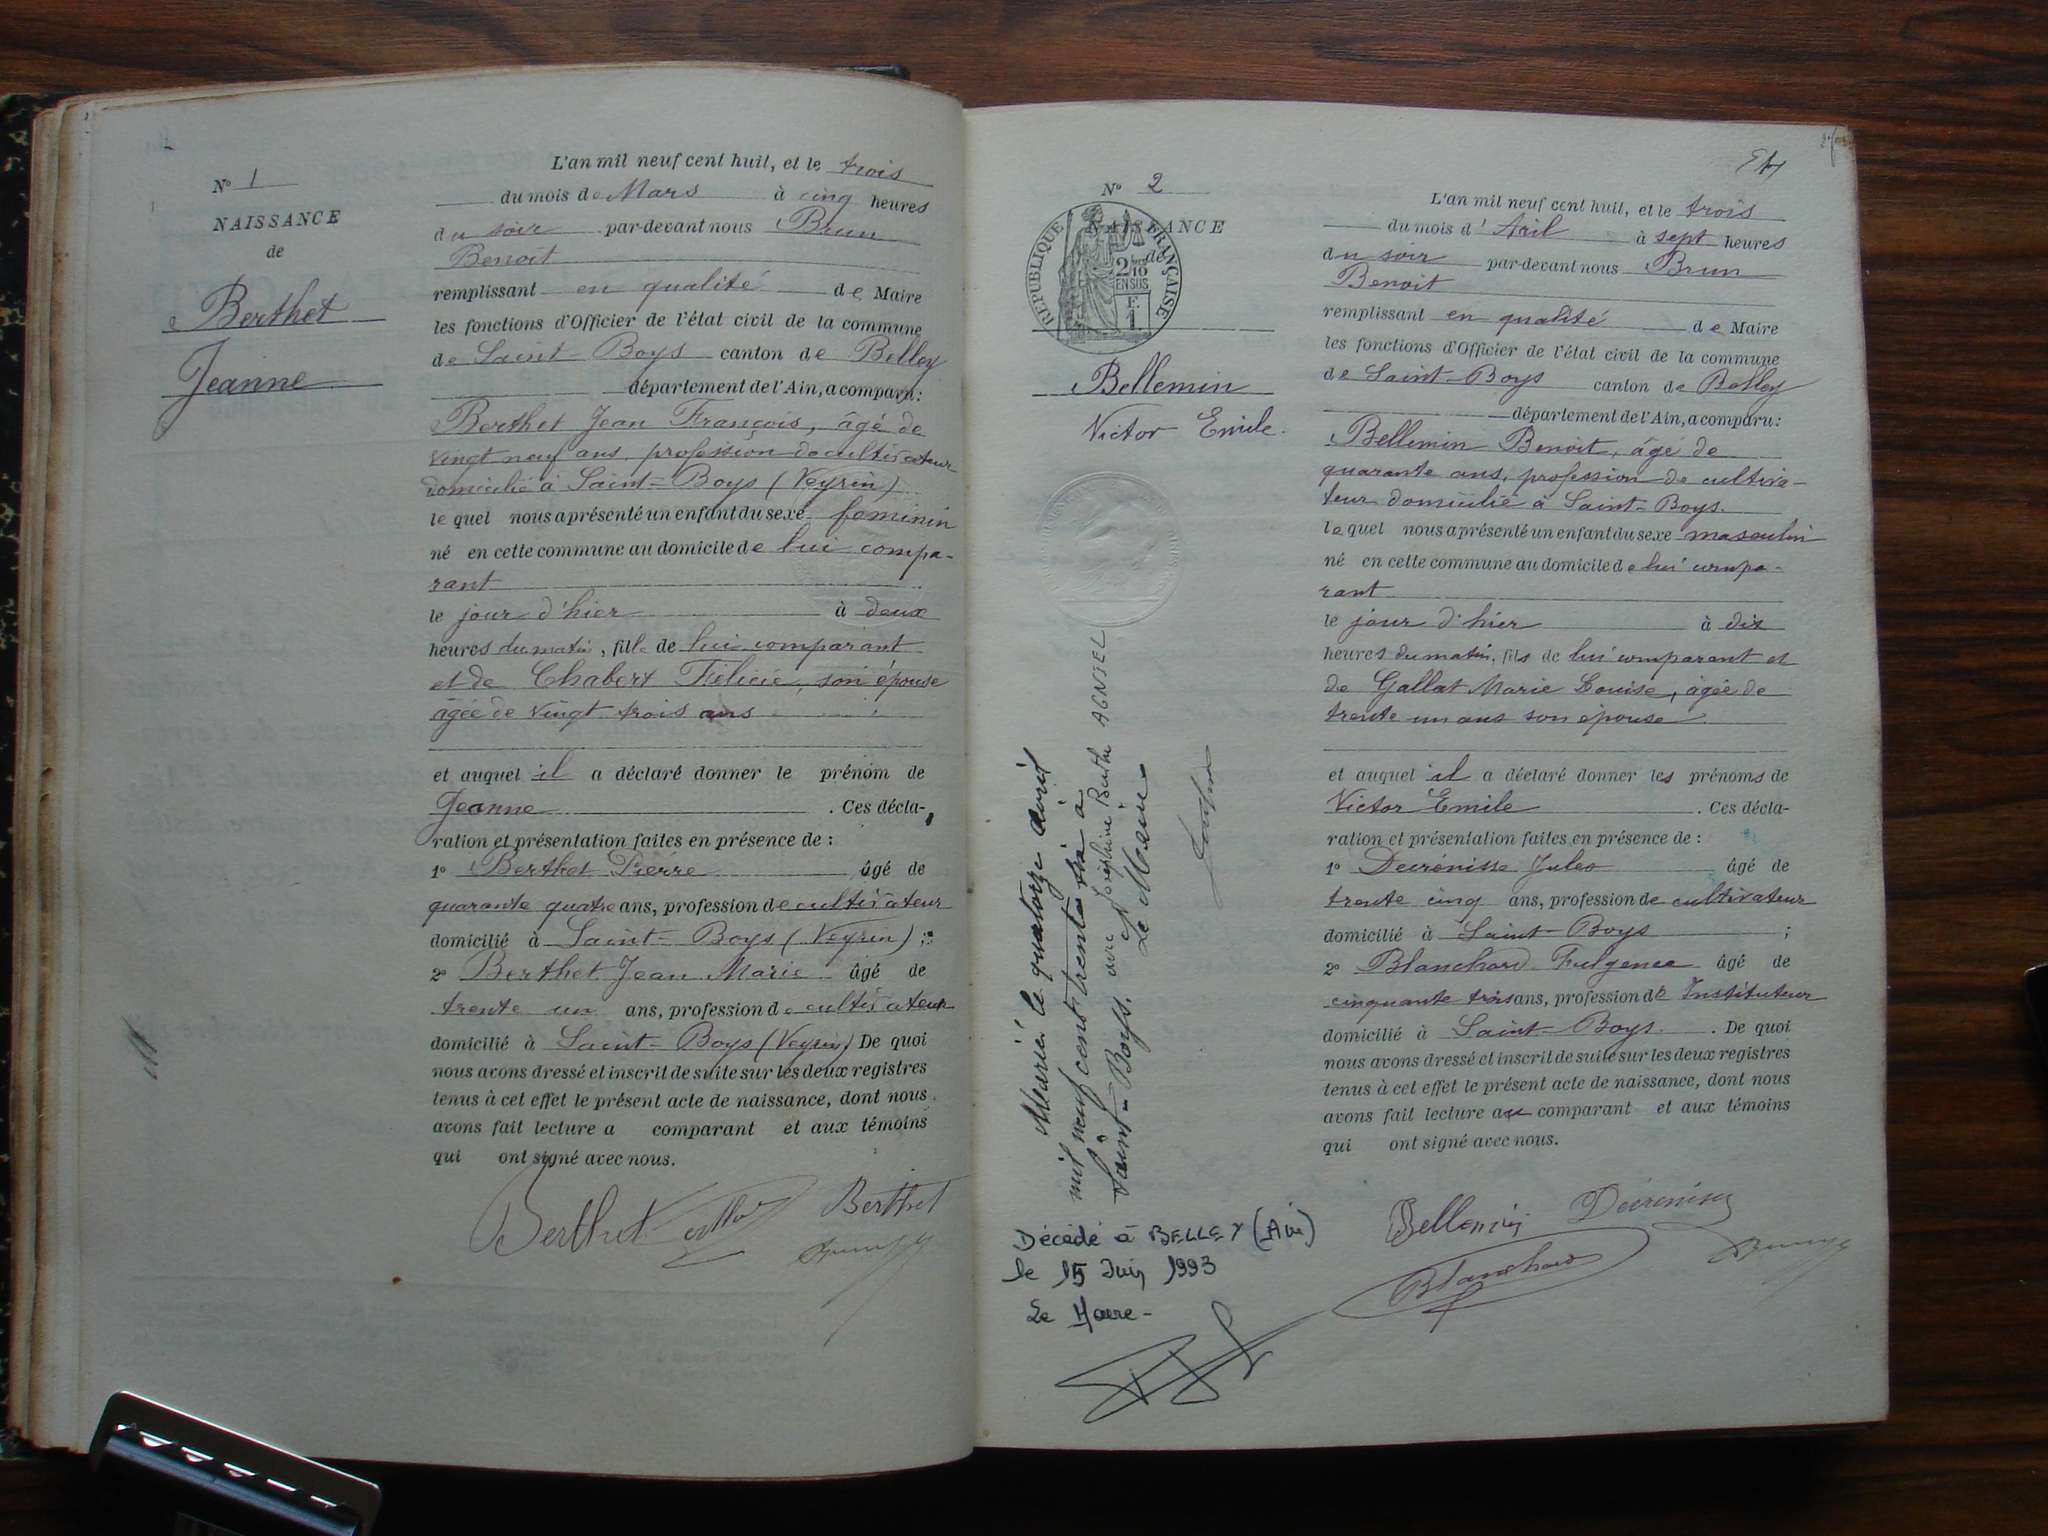 N° 1
NAISSANCE
de
Berthet
Jeanne
L'an mil neuf cent huit, et le trois
du mois de Mars à cinq heures
du soir par-devant nous Brun
Benoit
remplissant en qualité de Maire
les fonctions d'Officier de l'état civil de la commune
de Saint Boys canton de Belley
département de l'Ain, a comparu:
Berthet Jean François, âgé de
vingt neuf ans, profession de cultivateur
domicilié à Saint-Boys (Veyrin)
le quel nous a présenté un enfant du sexe feminin
né en cette commune au domicile de lui compa-
rant
le jour d'hier à deux
heures du matin, fille de lui comparant
et de Chabert Félicie, son épouse
agée de vingt trois ans
et auquel il a déclaré donner le prénom de
Jeanne. Ces décla-
ration et présentation faites en présence de :
1° Berthet Pierre âgé de
quarante quatre ans, profession de cultivateur
domicilié à Saint-Boys (Veyrin) ;
2° Berthet Jean Marie âgé de
trente un ans, profession de cultivateur
domicilié à Saint-Boys (Veyrin) De quoi
nous avons dressé et inscrit de suite sur les deux registres
tenus à cet effet le présent acte de naissance, dont nous
avons fait lecture a comparant et aux témoins
qui ont signé avec nous.
Berthet Berthet
N° 2
NAISSANCE
de
RÉPUBLIQUE FRANÇAISE
2/10
EN SUS
Bellemin
Victor Emile.
Marié le quatorze avril
mil neuf cent trente six à
Saint-Boys, avec Joséphine Berthe AGNIEL
Le Maire
Décédé à BELLEY (Ain)
le 15 Juin 1993
Le Maire-
L'an mil neuf cent huit, et le trois
du mois d'Avril à sept heures
du soir par-devant nous Brun
Benoit
remplissant en qualité de Maire
les fonctions d'Officier de l'état civil de la commune
de Saint-Boys canton de Belley
département de l'Ain, a comparu:
Bellemin Benoit, âgé de
quarante ans, profession de cultiva-
teur domicilié à Saint-Boys.
le quel nous a présenté un enfant du sexe masculin
né en cette commune au domicile de lui compa-
rant
le jour d'hier à dix
heures du matin, fils de lui comparant et
de Gallat Marie Louise, âgée de
trente un ans son épouse
et auquel il a déclaré donner les prénoms de
Victor Emile. Ces décla-
ration et présentation faites en présence de :
1° Decrénisse Jules âgé de
trente cinq ans, profession de cultivateur
domicilié à Saint-Boys ;
2° Blanchard Fulgence âgé de
cinquante trois ans, profession de Instituteur
domicilié à Saint-Boys. De quoi
nous avons dressé et inscrit de suite sur les deux registres
tenus à cet effet le présent acte de naissance, dont nous
avons fait lecture au comparant et aux témoins
qui ont signé avec nous.
Bellemin Décrenisse
Blanchard